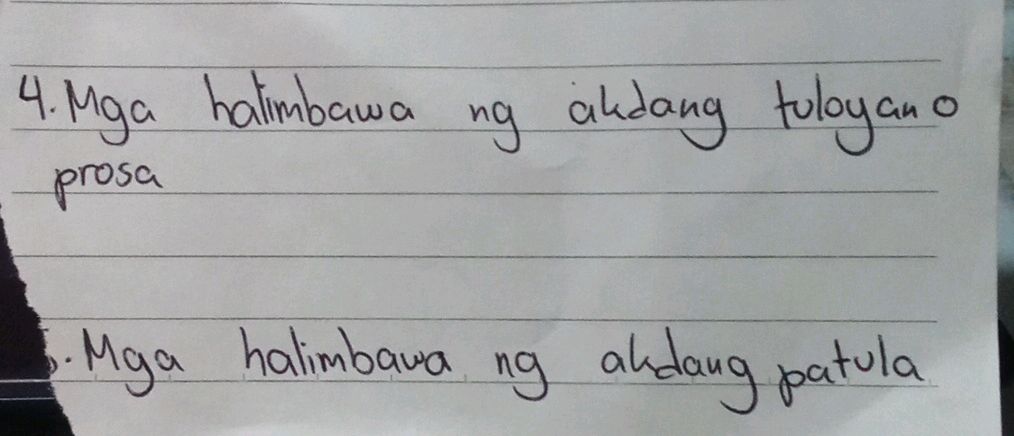 4. Mga halimbawa ng akdang tuloyan o
prosa
5. Mga halimbawa ng akdang patula